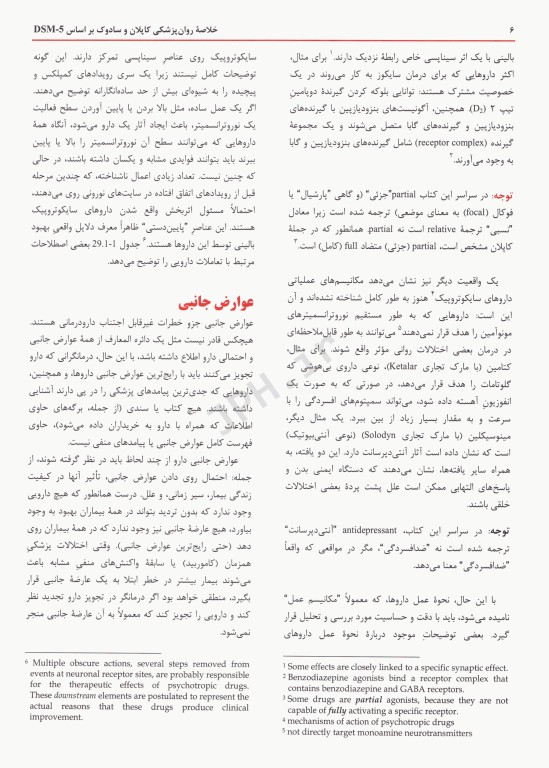 ۶
خلاصهٔ روان‌پزشکی کاپلان و سادوک بر اساس DSM-5
بالینی با یک اثر سیناپسی خاص رابطهٔ نزدیک دارند.۱ برای مثال،
اکثر داروهایی که برای درمان سایکوز به کار می‌روند در یک
خصوصیت مشترک هستند: توانایی بلوکه کردن گیرندهٔ دوپامین
تیپ ۲ (D₂). همچنین، آگونیست‌های بنزودیازپین با گیرنده‌های
بنزودیازپین و گیرنده‌های گابا متصل می‌شوند و یک مجموعهٔ
گیرنده (receptor complex) شامل گیرنده‌های بنزودیازپین و گابا
به وجود می‌آورند.۲
توجه: در سراسر این کتاب partial "جزئی" (و گاهی "پارشیال" یا
فوکال (focal) به معنای موضعی) ترجمه شده است زیرا معادل
"نسبی" ترجمهٔ relative است نه partial. همانطور که در جملهٔ
کاپلان مشخص است، partial (جزئی) متضاد full (کامل) است.۳
یک واقعیت دیگر نیز نشان می‌دهد مکانیسم‌های عملیاتی
داروهای سایکوتروپیک۴ هنوز به طور کامل شناخته نشده‌اند و آن
این است: داروهایی که به طور مستقیم نوروترانسمیترهای
مونوآمین را هدف قرار نمی‌دهند۵ می‌توانند به طور قابل‌ملاحظه‌ای
در درمان بعضی اختلالات روانی مؤثر واقع شوند. برای مثال،
کتامین (با مارک تجاری Ketalar)، نوعی داروی بی‌هوشی که
گلوتامات را هدف قرار می‌دهد، در صورتی که به صورت یک
انفوزیونِ آهسته داده شود، می‌تواند سمپتوم‌های افسردگی را با
سرعت و به مقدار بسیار زیاد از بین ببرد. یک مثال دیگر،
مینوسیکلین (با مارک تجاری Solodyn) (نوعی آنتی‌بیوتیک)
است که نشان داده است آثار آنتی‌دپرسانت دارد. این دو یافته، به
همراه سایر یافته‌ها، نشان می‌دهند که دستگاه ایمنی بدن و
پاسخ‌های التهابی ممکن است علل پشت پردهٔ بعضی اختلالات
خلقی باشند.
توجه: در سراسر این کتاب، antidepressant "آنتی‌دپرسانت"
ترجمه شده است نه "ضدافسردگی"، مگر در مواقعی که واقعاً
"ضدافسردگی" معنا می‌دهد.
با این حال، نحوهٔ عمل داروها، که معمولاً "مکانیسم عمل"
نامیده می‌شود، باید با دقت و حساسیت مورد بررسی و تحلیل قرار
گیرد. بعضی توضیحاتِ موجود دربارهٔ نحوهٔ عمل داروهای
1 Some effects are closely linked to a specific synaptic effect.
2 Benzodiazepine agonists bind a receptor complex that
contains benzodiazepine and GABA receptors.
3 Some drugs are partial agonists, because they are not
capable of fully activating a specific receptor.
4 mechanisms of action of psychotropic drugs
5 not directly target monoamine neurotransmitters
سایکوتروپیک روی عناصر سیناپسی تمرکز دارند. این گونه
توضیحات کامل نیستند زیرا یک سری رویدادهای کمپلکس و
پیچیده را به شیوه‌ای بیش از حد ساده‌انگارانه توضیح می‌دهند.
اگر یک عمل ساده، مثل بالا بردن یا پایین آوردن سطح فعالیت
یک نوروترانسمیتر، باعث ایجاد آثار یک دارو می‌شود، آنگاه همهٔ
داروهایی که می‌توانند سطح آن نوروترانسمیتر را بالا یا پایین
ببرند باید بتوانند فوایدی مشابه و یکسان داشته باشند، در حالی
که چنین نیست. تعداد زیادی اعمال ناشناخته، که چندین مرحله
قبل از رویدادهای اتفاق افتاده در سایت‌های نورونی روی می‌دهند،
احتمالاً مسئول اثربخش واقع شدن داروهای سایکوتروپیک
هستند. این عناصرِ "پایین‌دستی" ظاهراً معرف دلایل واقعیِ بهبود
بالینی توسط این داروها هستند.۶ جدول 1-29.1 بعضی اصطلاحات
مرتبط با تعاملات دارویی را توضیح می‌دهد.
عوارض جانبی
عوارض جانبی جزو خطرات غیرقابل اجتناب دارودرمانی هستند.
هیچکس قادر نیست مثل یک دائره المعارف از همهٔ عوارض جانبی
و احتمالی دارو اطلاع داشته باشد، با این حال، درمانگرانی که دارو
تجویز می‌کنند باید با رایج‌ترین عوارض جانبی داروها، و همچنین،
داروهایی که جدی‌ترین پیامدهای پزشکی را در پی دارند آشنایی
داشته باشند. هیچ کتاب یا سندی (از جمله، برگه‌های حاوی
اطلاعات که همراه با دارو به خریداران داده می‌شود)، حاوی
فهرست کامل عوارض جانبی یا پیامدهای منفی نیست.
عوارض جانبی دارو از چند لحاظ باید در نظر گرفته شوند، از
جمله: احتمال روی دادن عوارض جانبی، تأثیر آنها در کیفیت
زندگی بیمار، سیر زمانی، و علل. درست همانطور که هیچ دارویی
وجود ندارد که بدون تردید بتواند در همهٔ بیماران بهبود به وجود
بیاورد، هیچ عارضهٔ جانبی نیز وجود ندارد که در همهٔ بیماران روی
دهد (حتی رایج‌ترین عوارض جانبی). وقتی اختلالات پزشکیِ
همزمان (کاموربید) یا سابقهٔ واکنش‌های منفیِ مشابه باعث
می‌شوند بیمار بیشتر در خطر ابتلا به یک عارضهٔ جانبی قرار
بگیرد، منطقی خواهد بود اگر درمانگر در تجویز دارو تجدید نظر
کند و دارویی را تجویز کند که معمولاً به آن عارضهٔ جانبی منجر
نمی‌شود.
6 Multiple obscure actions, several steps removed from
events at neuronal receptor sites, are probably responsible
for the therapeutic effects of psychotropic drugs.
These downstream elements are postulated to represent the
actual reasons that these drugs produce clinical
improvement.